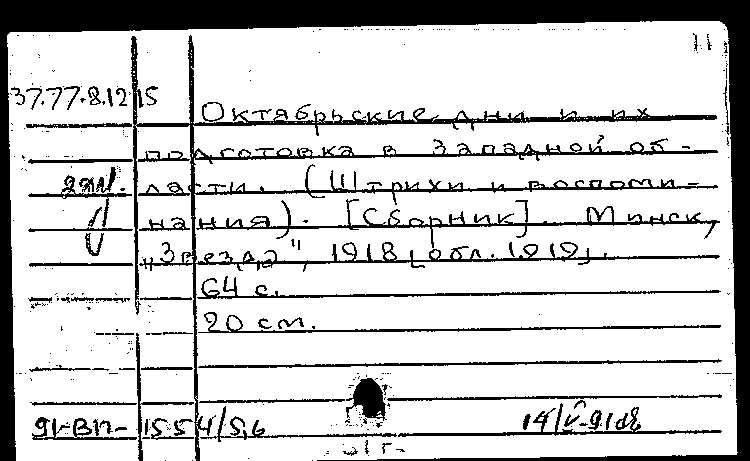 11
37.77.8.12 15
Октябрьские дни и их
подготовка в Западной об-
2эк. ласти. (Штрихи и воспоми-
нания). [Сборник]. Минск,
"Звезда", 1918 [обл. 1919].
64 с.
20 см.
91-ВП- 1554/5,6
14/V-91